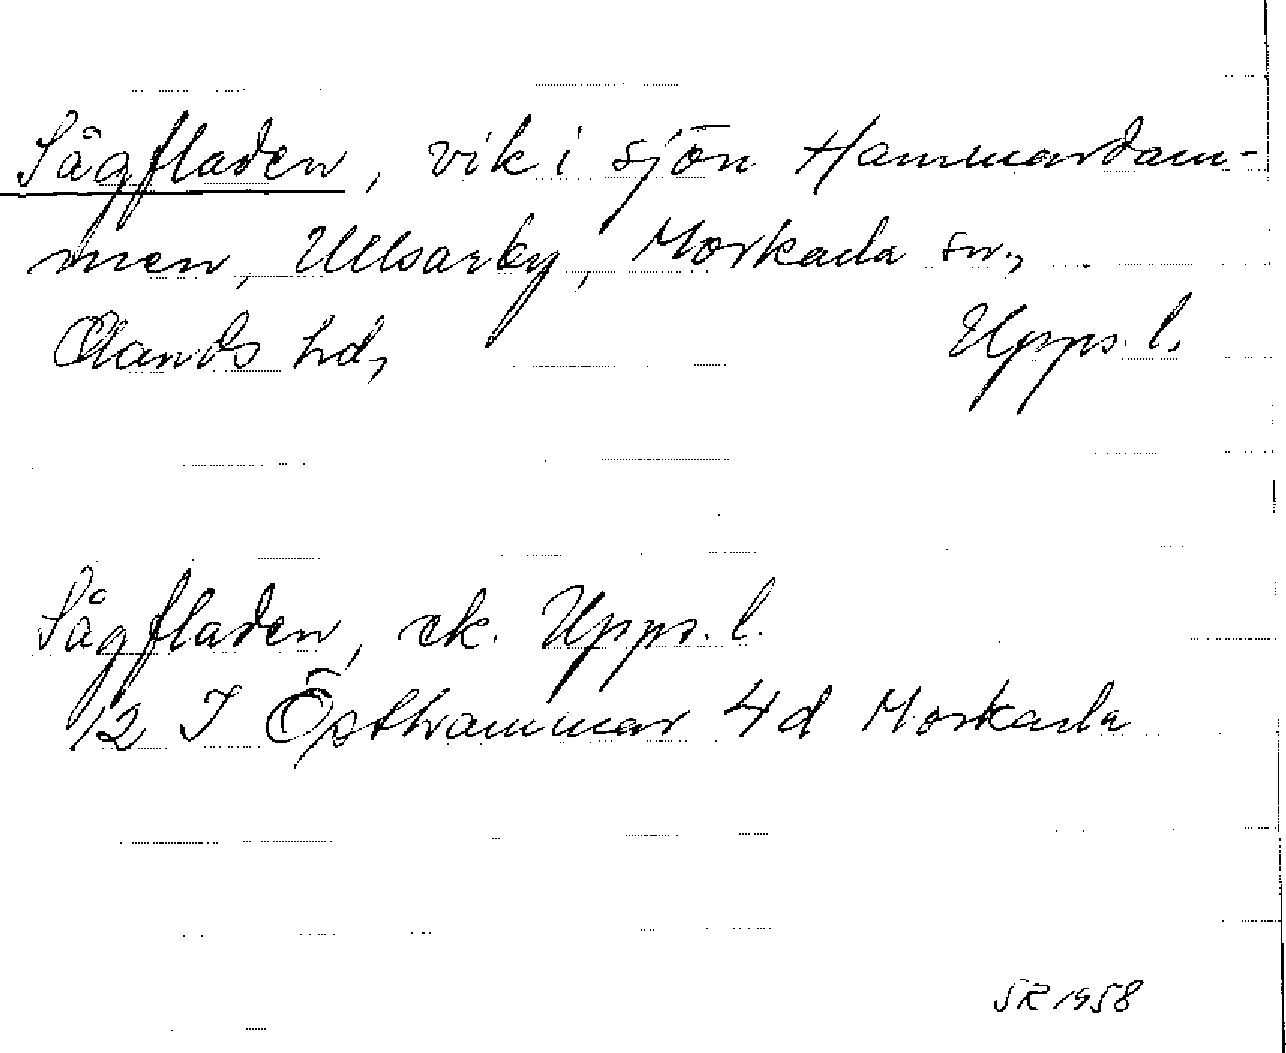 Sågfladen, vik i sjön Hammardam-
men, Ullsarby, Morkarla sn.,
Olands hd, Upps. l.
Sågfladen, ek. Upps. l.
12 I Östhammar 4d Morkarla
SR 1958